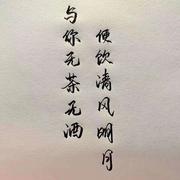 与你无茶无酒
便饮清风明月